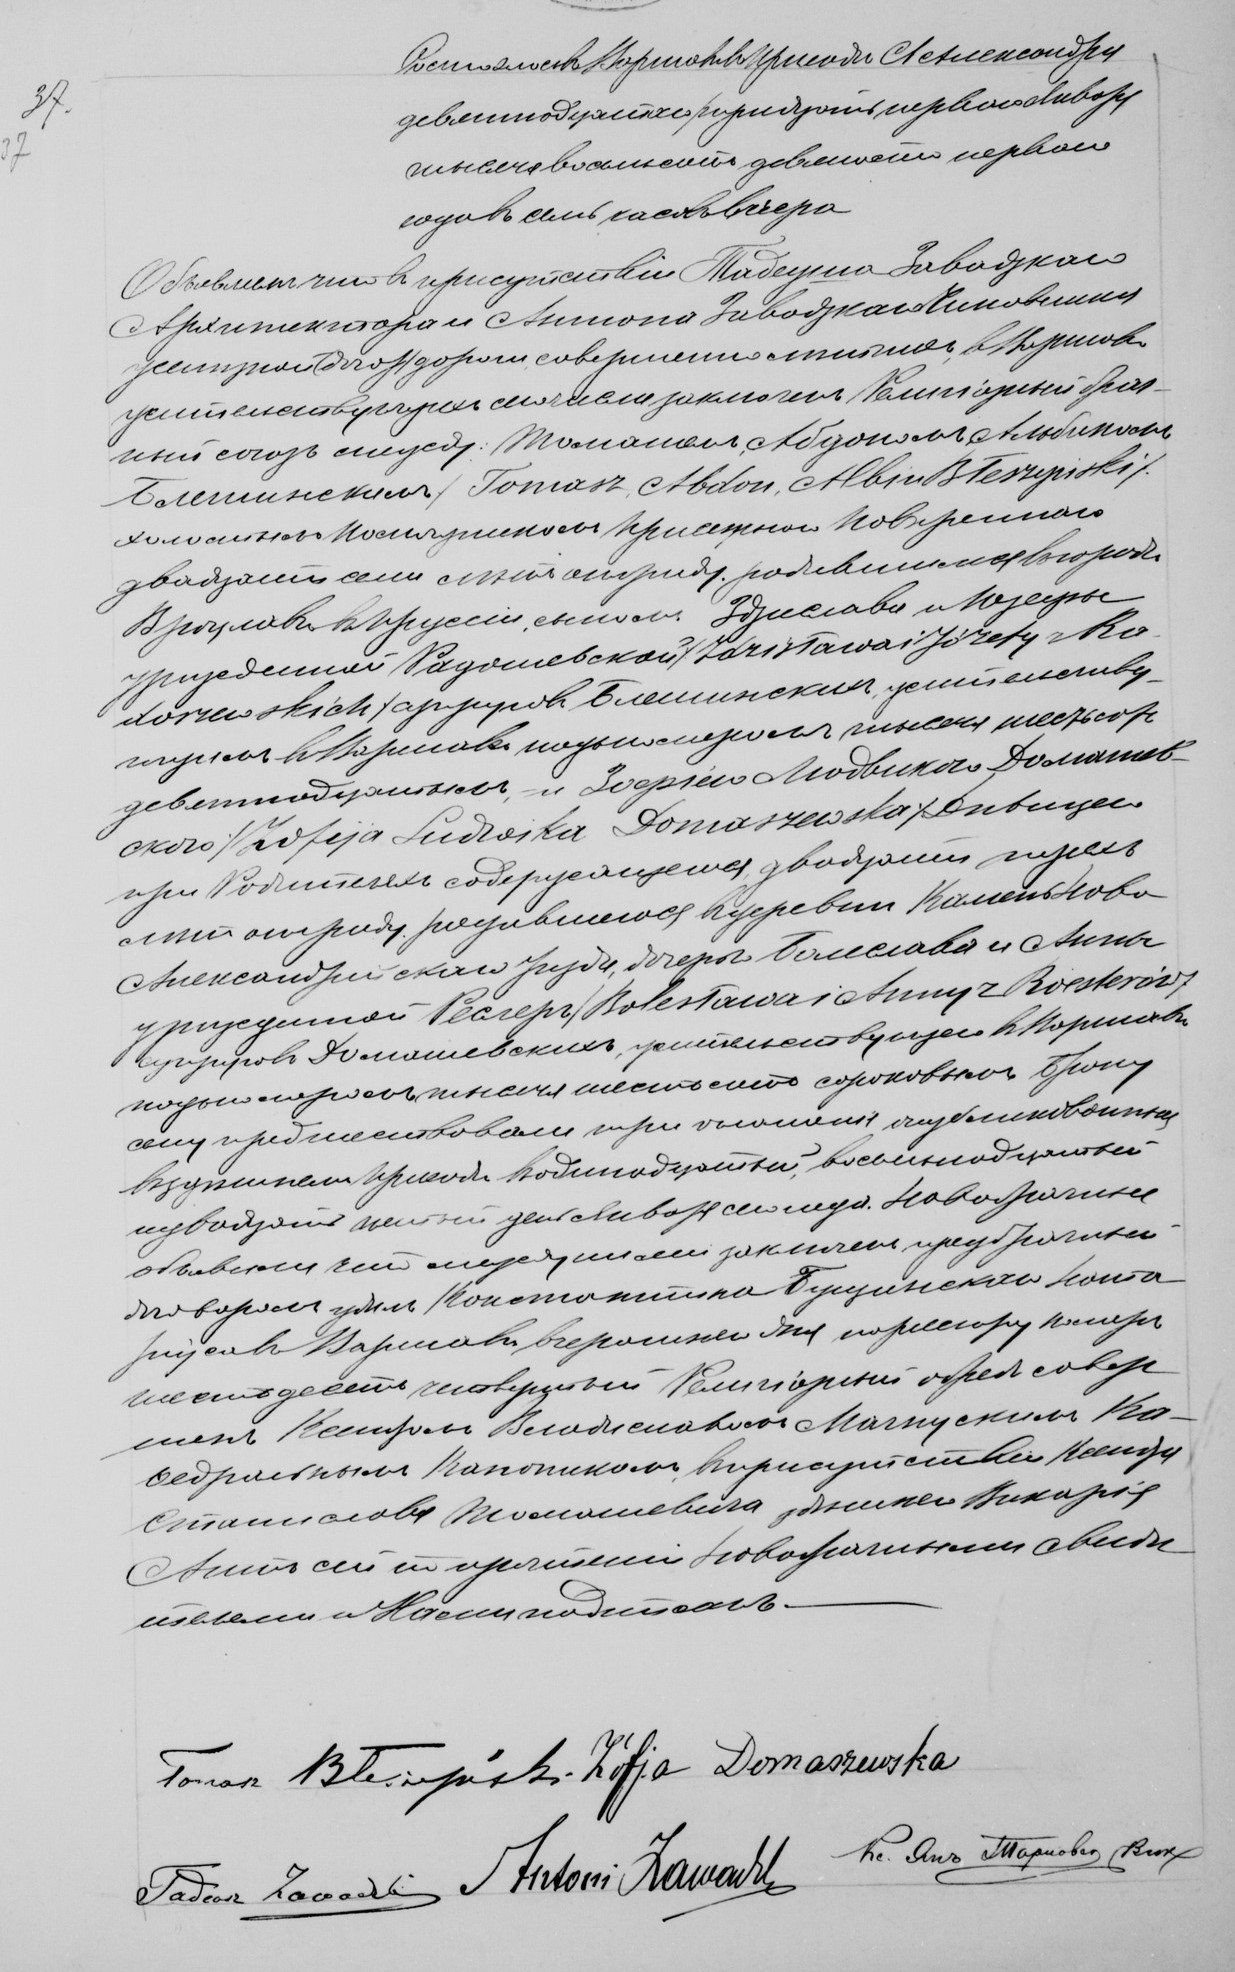 37.
37
Состоялось в Варшаве в приходе Св. Александра
девятнадцатого/тридцать первого Января
тысяча восемьсот девяносто первого
года в семь часов вечера
Объявляем что в присутствии Тадеуша Завадзкаго
Архитектора и Антона Завадзкаго Чиновника
железной дороги совершеннолетних, в Варшаве
жительствующих сего числа заключен Религиозный брач-
ный союз между: Томашем, Абдоном, Альбином
Блешинским / Tomasz, Abdon, Albin Błeszyński /.
холостым Помощником Присяжного Поверенного
двадцати семи лет от роду, родившимся в городе
Вроцлаве в Пруссии, сыном Здзислава и Юзефы
урожденной Радошевской / Zdzisława i Józefy z Ra-
doszewskich / супругов Блешинских, жительству-
ющим в Варшаве под номером тысяча шестьсот
девятнадцатым, – и Зофиею Людвикою Домашев-
скою / Zofija Ludwika Domaszewska / Девицею
при Родителях содержащеюся, двадцати трех
лет от роду, родившеюся в деревни Камень Ново
Александрийскаго уезда, дочерью Болеслава и Анны
урожденной Рестер / Bolesława i Anny z Roesterów /
супругов Домашевских, жительствующею в Варшаве
под номером тысяча шестьсот сороковым. Браку
сему предшествовали три оглашения опубликованныя
в здешнем приходе в одиннадцатый, восемнадцатый
и двадцать пятый день Января сего года. Новобрачные
объявили что между ними заключен предбрачный
договор у Константина Нота-
риуса в Варшаве, вчерашнего дня по реестру номер
шестьдесят четвертый Религиозный обряд совер-
шен Ксендзом Владиславом Ка-
федральным Каноником, в присутствии Ксендза
Станислава Томашевича здешнего Викария
Акт сей по прочтении Новобрачными Свиде
телями и Нами подписан.
Tomasz Błeszyński. Zofja Domaszewska
Tadeusz Zawadzki Antoni Zawadzki Кс. Ян Тарновс Вик